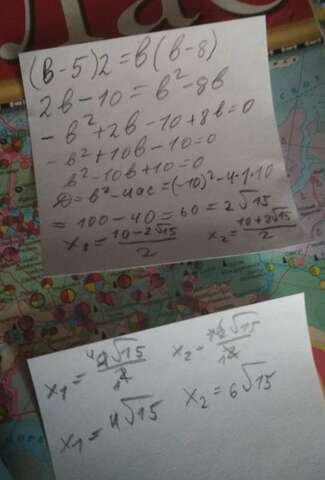 (в-5)2=в(в-8)
2в-10=в²-8в
-в²+2в-10+8в=0
-в²+10в-10=0
в²-10в+10=0
D=в²-4ас=(-10)²-4·1·10
=100-40=60=2√15
x₁=10-2√15/2 x₂=10+2√15/2
x₁= x₂=
x₁=4√15 x₂=6√15